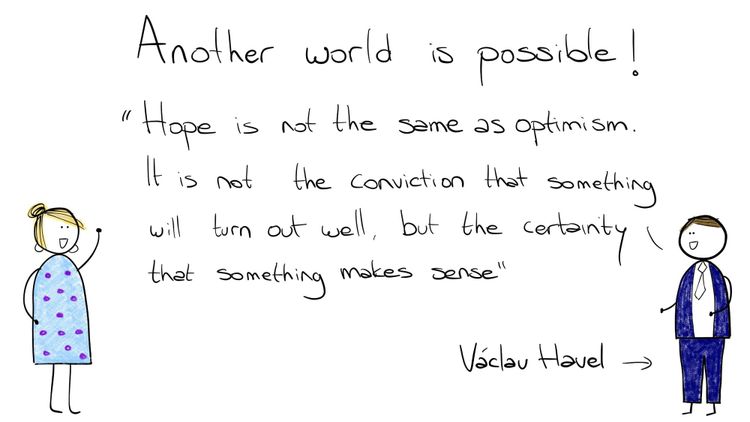 Another world is possible!
"Hope is not the same as optimism.
It is not the conviction that something
will turn out well, but the certainty
that something makes sense"
Václav Havel →